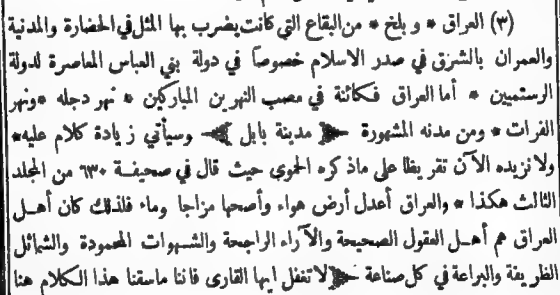 (٣) العراق * و بلخ * من البقاع التي كانت يضرب بها المثل في الحضارة والمدنية
والعمران بالشرق في صدر الاسلام خصوصاً في دولة بني العباس المعاصرة لدولة
الرستميين * أما العراق فكائنة في مصب النهرين المباركين * نهر دجله *ونهر
الفرات * ومن مدنه المشهورة مدينة بابل وسيأتي زيادة كلام عليه*
ولا نزيده الآن تقريظا على ما ذكره الحموى حيث قال في صحيفة ٦٣٠ من المجلد
الثالث هكذا * والعراق أعدل أرض هواء وأصحها مزاجا وماء فلذلك كان أهل
العراق هم أهل العقول الصحيحة والآراء الراجحة والشهوات المحمودة والشمائل
الظريفة والبراعة في كل صناعة لا تغفل ايها القارى فاننا ما سقنا هذا الكلام هنا